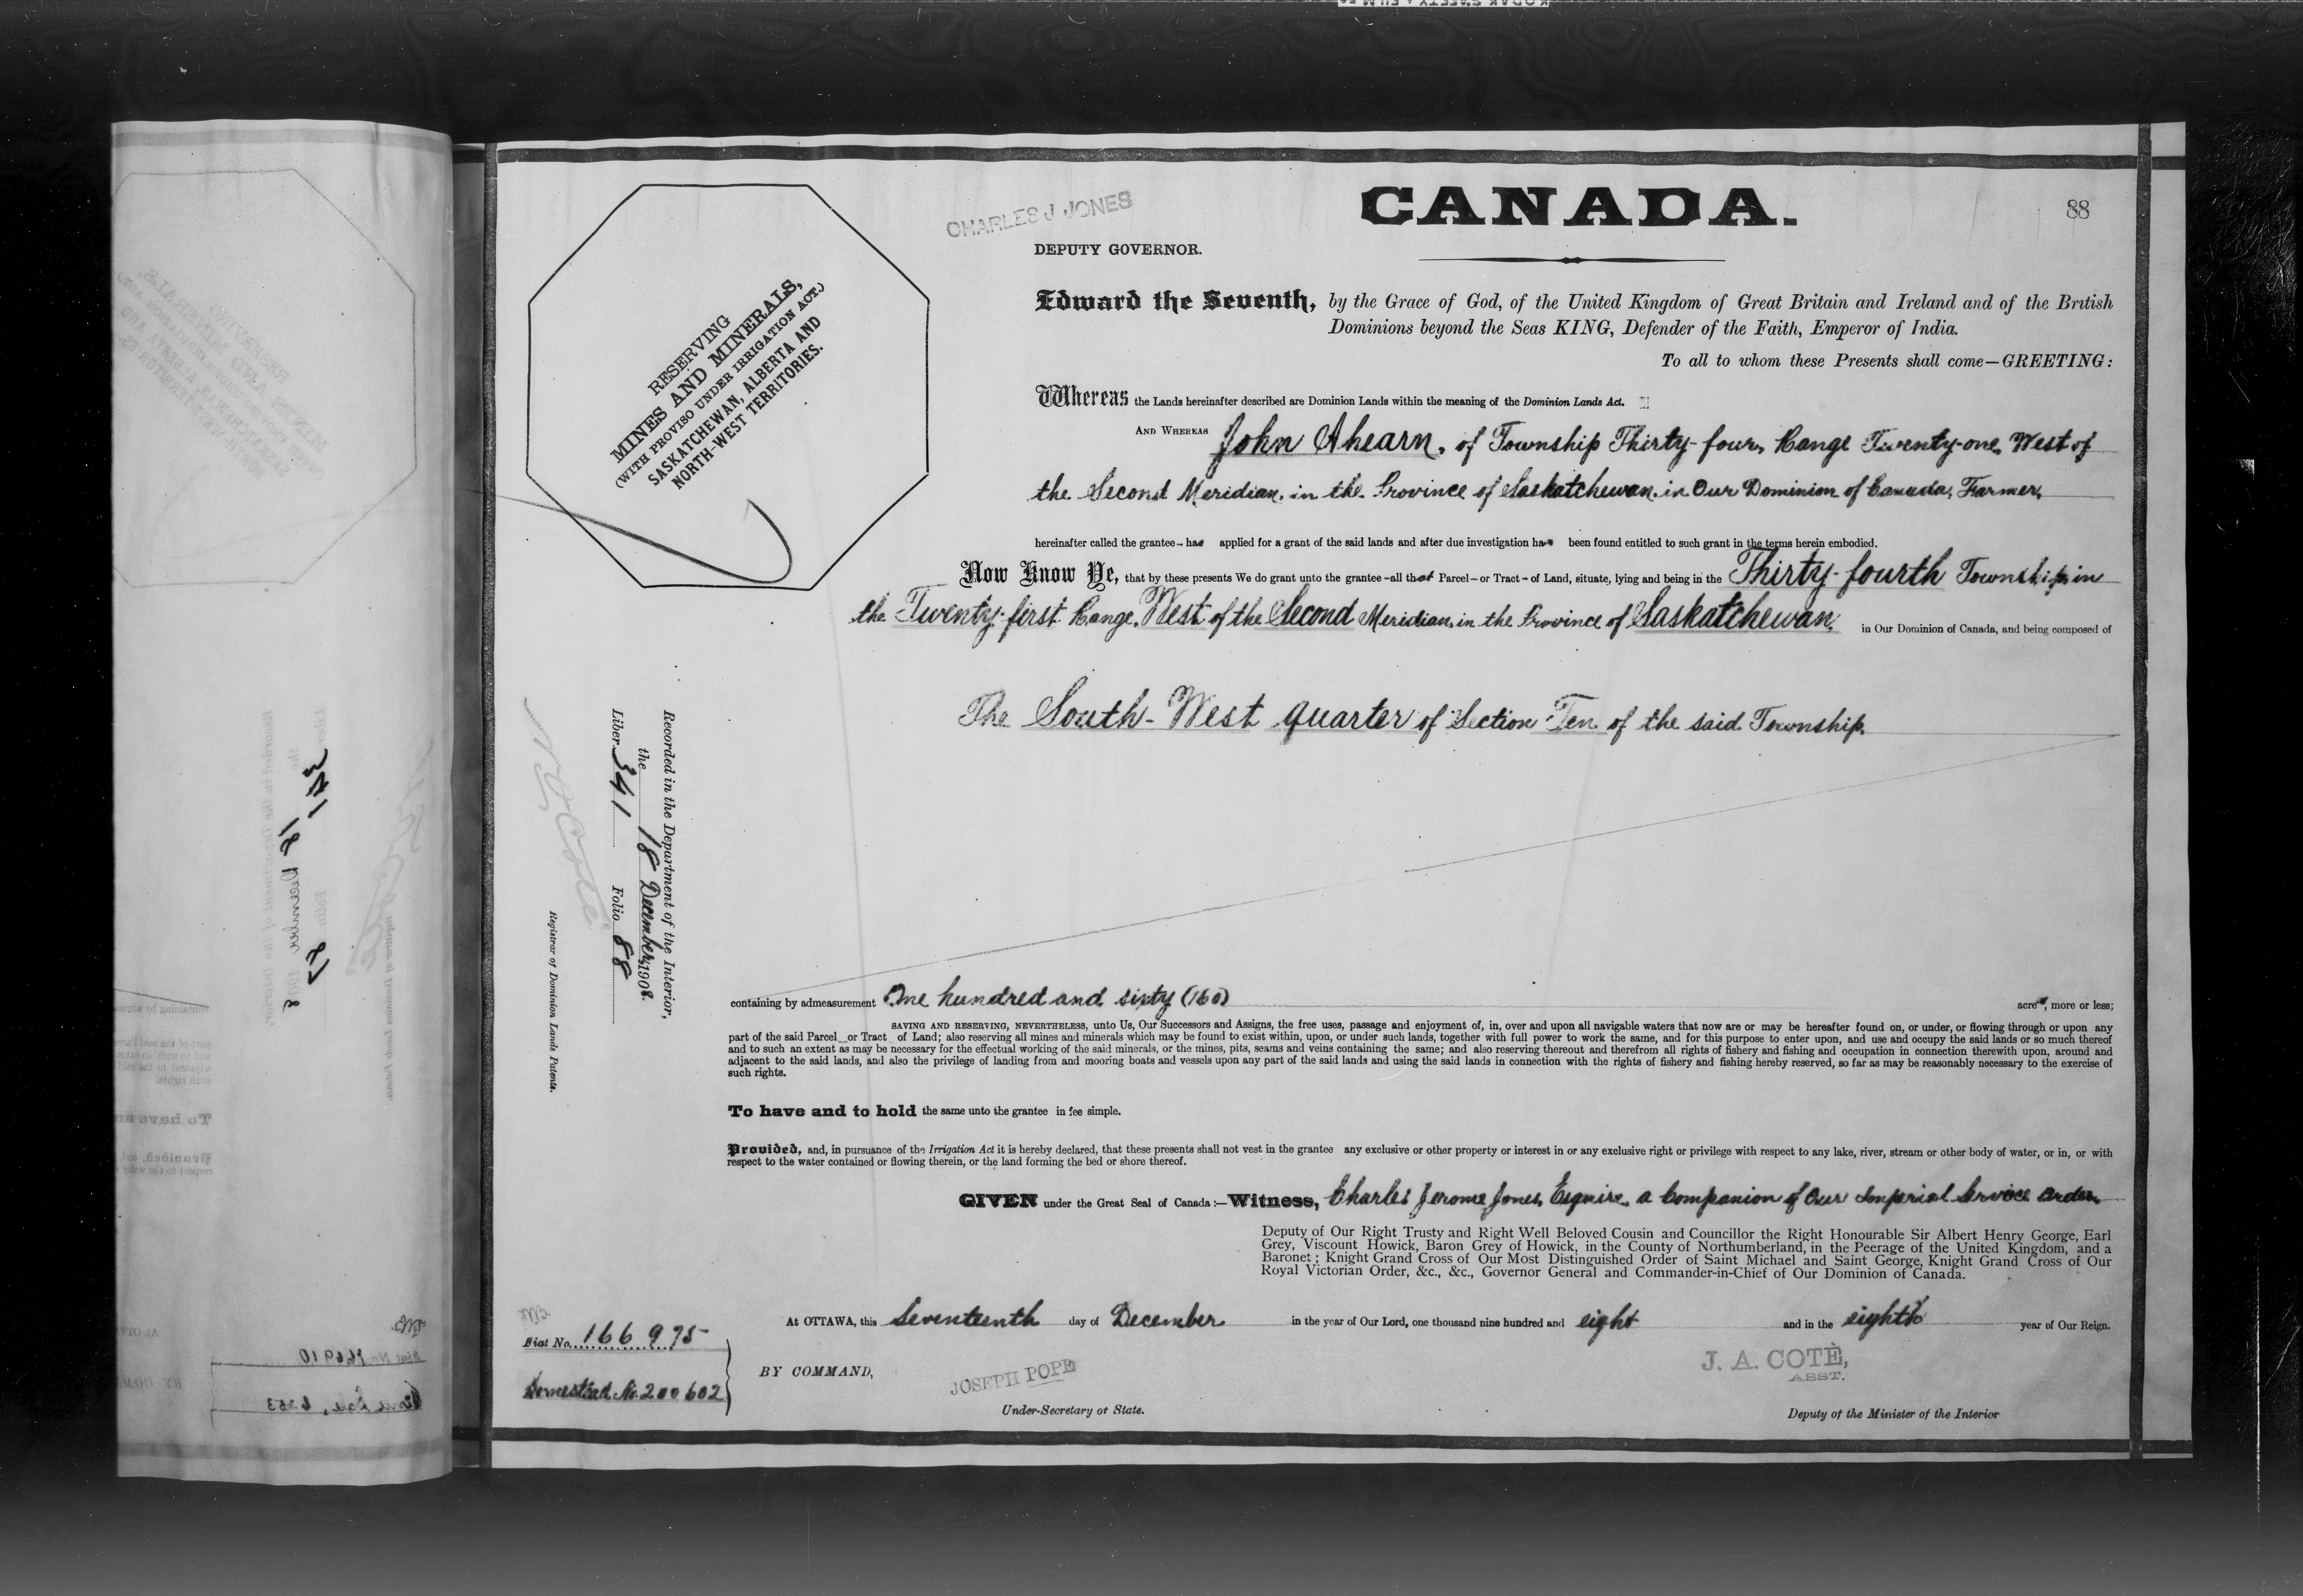 CANADA.
88
CHARLES J JONES
DEPUTY GOVERNOR.
RESERVING
MINES AND MINERALS,
(WITH PROVISO UNDER IRRIGATION ACT.)
SASKATCHEWAN, ALBERTA AND
NORTH-WEST TERRITORIES.
Edward the Seventh, by the Grace of God, of the United Kingdom of Great Britain and Ireland and of the British
Dominions beyond the Seas KING, Defender of the Faith, Emperor of India.
To all to whom these Presents shall come—GREETING:
Whereas the Lands hereinafter described are Dominion Lands within the meaning of the Dominion Lands Act.
AND WHEREAS John Ahearn, of Township Thirty-four, Range Twenty-one, West of
the Second Meridian, in the Province of Saskatchewan, in Our Dominion of Canada, Farmer,
hereinafter called the grantee - has applied for a grant of the said lands and after due investigation has been found entitled to such grant in the terms herein embodied.
Now Know Ye, that by these presents We do grant unto the grantee - all that Parcel - or Tract - of Land, situate, lying and being in the Thirty-fourth Township, in
the Twenty-first Range, West of the Second Meridian, in the Province of Saskatchewan, in Our Dominion of Canada, and being composed of
The South-West quarter of Section Ten of the said Township.
Recorded in the Department of the Interior,
the 18 December, 1908.
Liber 341 Folio 88
Registrar of Dominion Lands Patents.
containing by admeasurement One hundred and sixty (160) acres, more or less;
SAVING AND RESERVING, NEVERTHELESS, unto Us, Our Successors and Assigns, the free uses, passage and enjoyment of, in, over and upon all navigable waters that now are or may be hereafter found on, or under, or flowing through or upon any
part of the said Parcel or Tract of Land; also reserving all mines and minerals which may be found to exist within, upon, or under such lands, together with full power to work the same, and for this purpose to enter upon, and use and occupy the said lands or so much thereof
and to such an extent as may be necessary for the effectual working of the said minerals, or the mines, pits, seams and veins containing the same; and also reserving thereout and therefrom all rights of fishery and fishing and occupation in connection therewith upon, around and
adjacent to the said lands, and also the privilege of landing from and mooring boats and vessels upon any part of the said lands and using the said lands in connection with the rights of fishery and fishing hereby reserved, so far as may be reasonably necessary to the exercise of
such rights.
To have and to hold the same unto the grantee in fee simple.
Provided, and, in pursuance of the Irrigation Act it is hereby declared, that these presents shall not vest in the grantee any exclusive or other property or interest in or any exclusive right or privilege with respect to any lake, river, stream or other body of water, or in, or with
respect to the water contained or flowing therein, or the land forming the bed or shore thereof.
GIVEN under the Great Seal of Canada:—Witness, Charles Jerome Jones, Esquire, a Companion of Our Imperial Service Order,
Deputy of Our Right Trusty and Right Well Beloved Cousin and Councillor the Right Honourable Sir Albert Henry George, Earl
Grey, Viscount Howick, Baron Grey of Howick, in the County of Northumberland, in the Peerage of the United Kingdom, and a
Baronet; Knight Grand Cross of Our Most Distinguished Order of Saint Michael and Saint George, Knight Grand Cross of Our
Royal Victorian Order, &c., &c., Governor General and Commander-in-Chief of Our Dominion of Canada.
At OTTAWA, this Seventeenth day of December in the year of Our Lord, one thousand nine hundred and eight and in the eighth year of Our Reign.
Fiat No. 166975
Homestead No. 200602
BY COMMAND,
JOSEPH POPE
Under-Secretary of State.
J. A. COTÈ,
ASST.
Deputy of the Minister of the Interior